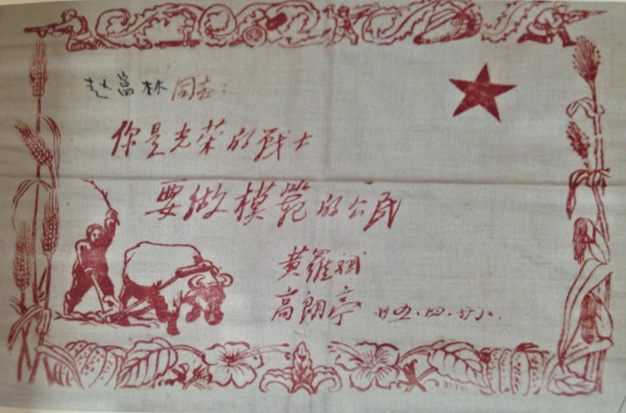 赵富林同志：
你是光荣的战士
要做模范的公民
黄罗斌
高朗亭 廿五.四.廿八.